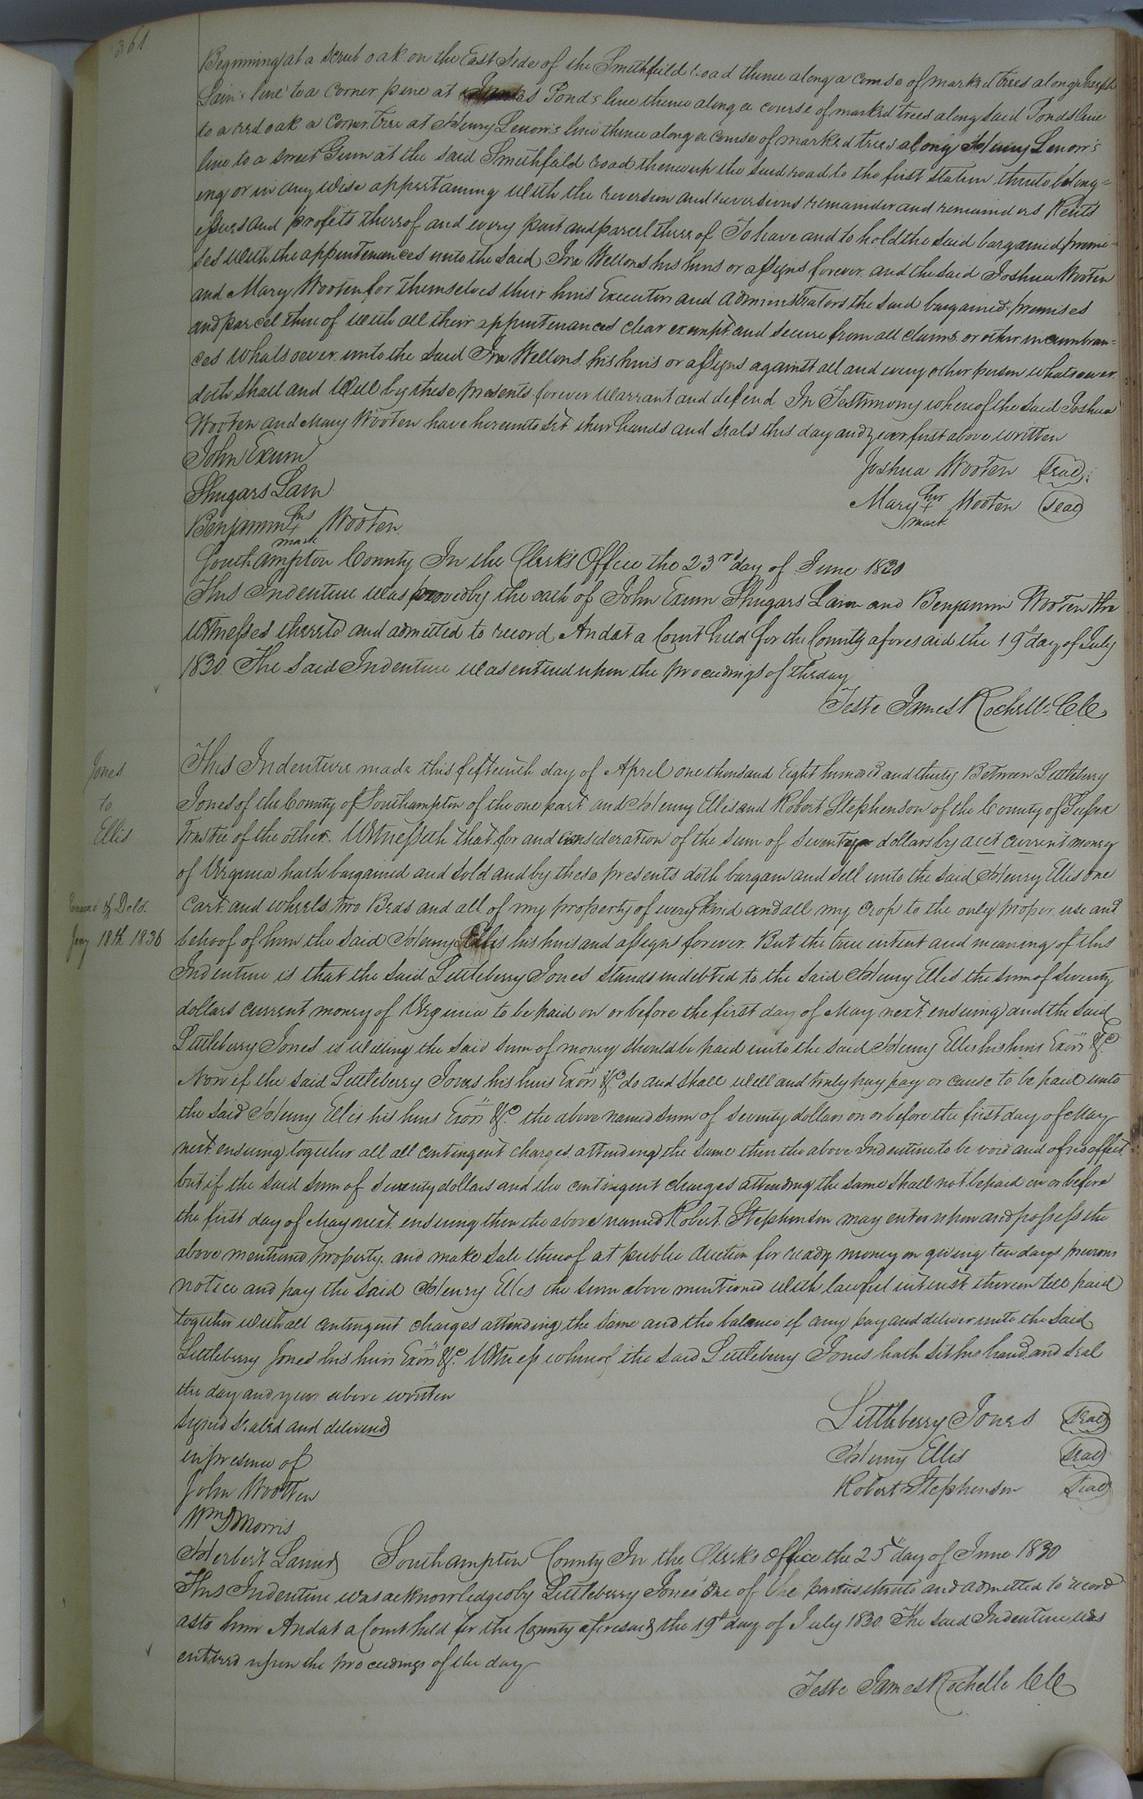 361
Beginning at a scrub oak on the East Side of the Smithfield road thence along a course of marked trees along Joseph
Lain's line to a corner pine at Ponds line thence along a course of marked trees along said Ponds line
to a red oak a Corner tree at Henry Lenow's line thence along a course of marked trees along Henry Lenow's
line to a sweet Gum at the said Smithfield road thence up the said road to the first station thereto belong=
ing or in any wise appertaining with the reversion and reversions remainder and remainders Rents
issues and profits thereof and every part and parcel thereof To have and to hold the said bargained premi=
ses with the appurtenances unto the said Ira Wellons his heirs or assigns forever and the said Joshua Wooten
and Mary Wooten for themselves their heirs Executors and administrators the said bargained premises
and parcel thereof with all their appurtenances clear exempt and secure from all claims or other incumbran=
ces whatsoever unto the said Ira Wellons his heirs or assigns against all and every other person whatsoever
doth shall and will by these presents forever Warrant and defend In Testimony whereof the said Joshua
Wooten and Mary Wooten have hereunto set their hands and seals this day and year first above written
John Exum
Joshua Wooten Seal
Shugars Lain
Mary her + mark Wooten Seal
Benjamin his + mark Wooten
Southampton County In the Clerk's Office the 23rd day of June 1830
This Indenture was proved by the oath of John Exum Shugars Lain and Benjamin Wooten the
Witnesses thereto and admitted to record And at a Court held for the County aforesaid the 19th day of July
1830 The said Indenture was entered upon the proceedings of the day
Teste James Rochelle C C
Jones
to
Ellis
This Indenture made this fifteenth day of April one thousand Eight hundred and thirty Between Littleberry
Jones of the County of Southampton of the one part and Henry Ellis and Robert Stephenson of the County of Sussex
Trustee of the other. Witnesseth that for and consideration of the sum of seventy dollars by acct current money
of Virginia hath bargained and sold and by these presents doth bargain and sell unto the said Henry Ellis one
Examd & Deld.
Jany 18th 1836
Cart and wheels, two Beds and all of my property of every kind and all my crop to the only proper use and
behoof of him the said Henry Ellis his heirs and assigns forever. But the true intent and meaning of this
Indenture is that the said Littleberry Jones stands indebted to the said Henry Ellis the sum of seventy
dollars current money of Virginia to be paid on or before the first day of May next ensuing and the said
Littleberry Jones is willing the said sum of money should be paid unto the said Henry Ellis his heirs Exors &c.
Now if the said Littleberry Jones his heirs Exors &c do and shall well and truly pay pay or cause to be paid unto
the said Henry Ellis his heirs Exors &c. the above named sum of seventy dollars on or before the first day of May
next ensuing together all all contingent charges attending the same then the above Indenture to be void and of no effect
but if the said sum of seventy dollars and the contingent charges attending the same shall not be paid on or before
the first day of May next ensuing then the above named Robert Stephenson may enter upon and possess the
above mentioned property, and make sale thereof at public auction for ready money on giving ten days previous
notice and pay the said Henry Ellis the sum above mentioned with lawful interest thereon till paid
together with all contingent charges attending the same and the balance if any pay and deliver unto the said
Littleberry Jones his heirs Exors &c. Witness whereof the said Littleberry Jones hath set his hand and seal
the day and year above written
Signed sealed and delivered
Littleberry Jones Seal
in presence of
Henry Ellis Seal
John Wootten
Robert Stephenson Seal
Wm D Morris
Herbert Lanier Southampton County In the Clerks office the 25th day of June 1830
This Indenture was acknowledged by Littleberry Jones one of the parties thereto and admitted to record
as to him And at a Court held for the County aforesaid the 19th day of July 1830 The said Indenture was
entered upon the proceedings of the day
Teste James Rochelle C C